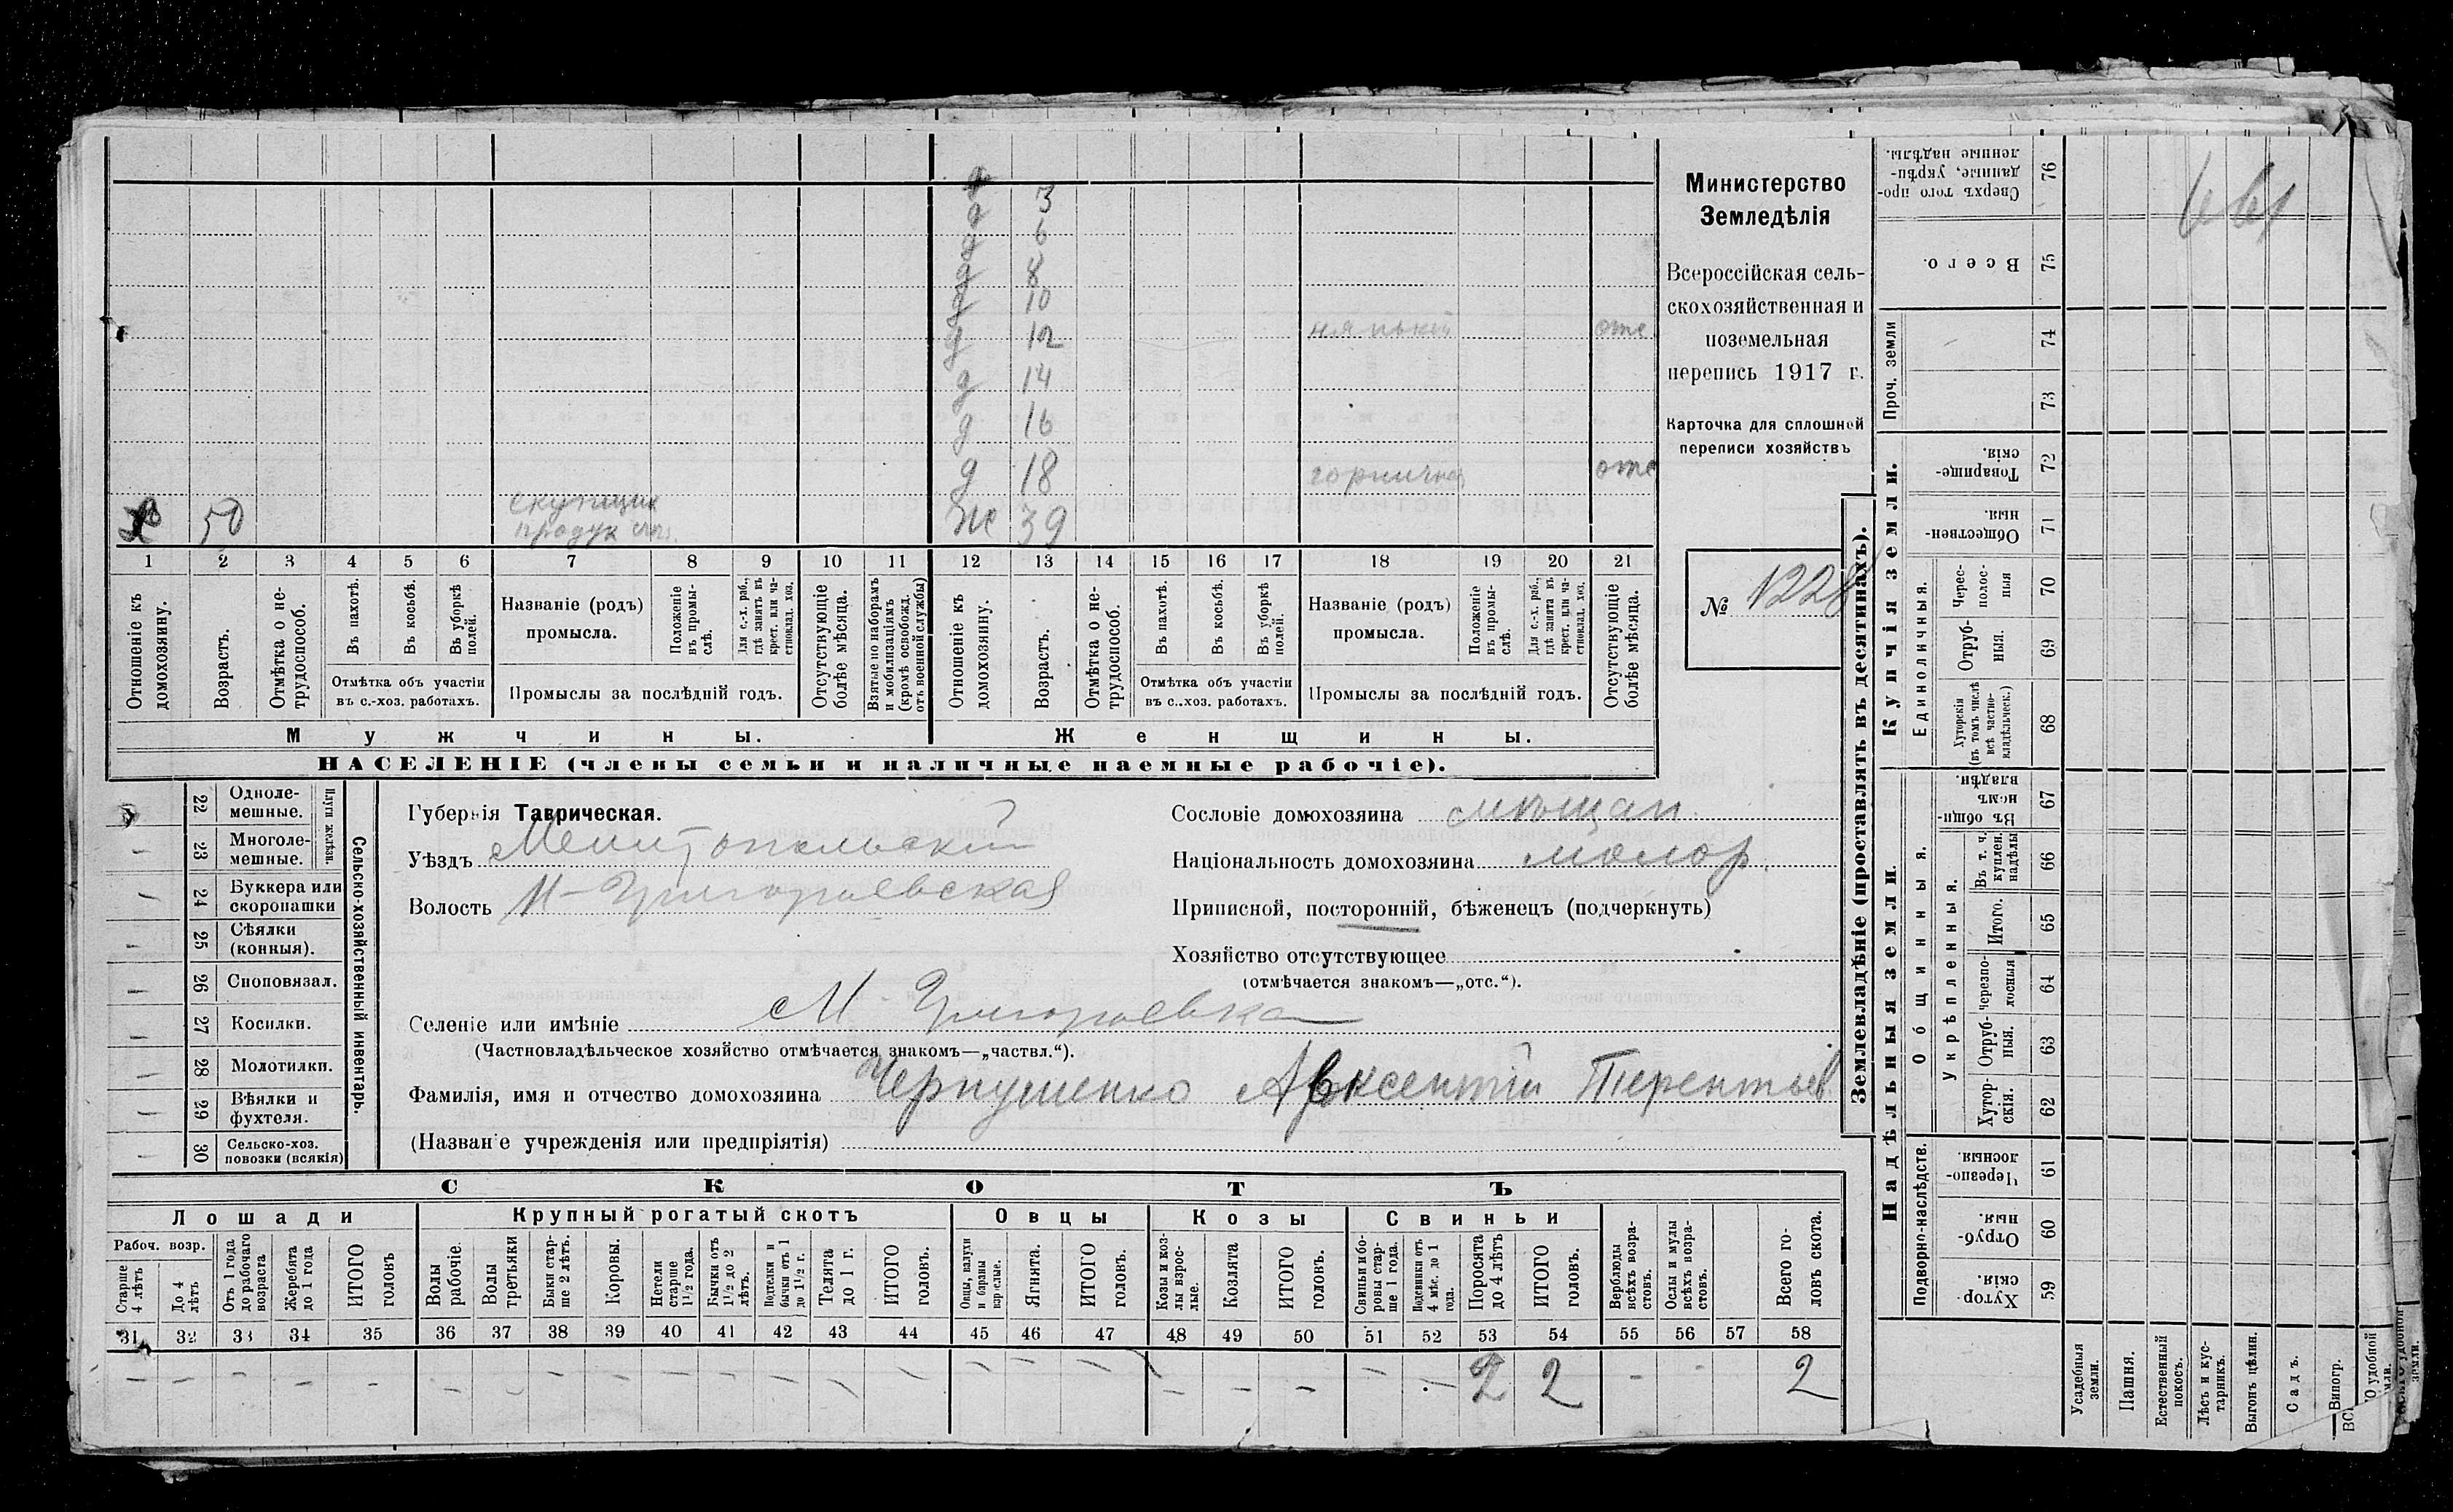 д 3
д 6
д 8
д 10
д 12 нянькой отс.
д 14
д 16
д 18 горничная отс
50 скупщик продуктов. ж 39
1 2 3 4 5 6 7 8 9 10 11 12 13 14 15 16 17 18 19 20 21
Отношеніе къ домохозяину.
Возрастъ.
Отмѣтка о нетрудоспособ.
Въ пахотѣ.
Въ косьбѣ.
Въ уборкѣ полей.
Отмѣтка объ участіи въ с.-хоз. работахъ.
Названіе (родъ) промысла.
Положеніе въ промыслѣ.
Для с.-х. раб., гдѣ занятъ въ крест. или частновлад. хоз.
Промыслы за послѣдній годъ.
Отсутствующіе болѣе мѣсяца.
Взятые по наборамъ и мобилизаціямъ (кромѣ освобожд. отъ военной службы)
Отношеніе къ домохозяину.
Возрастъ.
Отмѣтка о нетрудоспособ.
Въ пахотѣ.
Въ косьбѣ.
Въ уборкѣ полей.
Отмѣтка объ участіи въ с.-хоз. работахъ.
Названіе (родъ) промысла.
Положеніе въ промыслѣ.
Для с.-х. раб., гдѣ занята въ крест. или частновлад. хоз.
Промыслы за послѣдній годъ.
Отсутствующіе болѣе мѣсяца.
Мужчины. Женщины.
НАСЕЛЕНІЕ (члены семьи и наличные наемные рабочіе).
Министерство
Земледѣлія
Всероссійская сель-
скохозяйственная и
поземельная
перепись 1917 г.
Карточка для сплошной
переписи хозяйствъ
№ 1228
22 Одноле-мешные.
23 Многоле-мешные.
Плуги желѣзн.
24 Буккера или скоропашки
25 Сѣялки (конныя).
26 Сноповязал.
27 Косилки.
28 Молотилки.
29 Вѣялки и фухтеля.
30 Сельско-хоз. повозки (всякія)
Сельско-хозяйственный инвентарь.
Губернія Таврическая.
Уѣздъ Мелитопольскій
Волость М-Григорьевская
Сословіе домохозяина мѣщан.
Національность домохозяина малор.
Приписной, посторонній, бѣженецъ (подчеркнуть)
Хозяйство отсутствующее
(отмѣчается знакомъ—„отс.“).
Селеніе или имѣніе М Григорьевка
(Частновладѣльческое хозяйство отмѣчается знакомъ—„частвл.“).
Фамилія, имя и отчество домохозяина Чернушенко Авксентій Терентьев
(Названіе учрежденія или предпріятія)
СКОТЪ
Лошади Крупный рогатый скотъ Овцы Козы Свиньи
Рабоч. возр.
Старше 4 лѣтъ
До 4 лѣтъ
Отъ 1 года до рабочаго возраста
Жеребята до 1 года
ИТОГО головъ
Волы рабочіе.
Волы третьяки
Быки старше 2 лѣтъ.
Коровы.
Нетели старше 1½ года.
Бычки отъ 1½ до 2 лѣтъ.
Подтелки и бычки отъ 1 до 1½ г.
Телята до 1 г.
ИТОГО головъ.
Овцы, валухи и бараны взрослые.
Ягнята.
ИТОГО головъ.
Козы и козлы взрослые.
Козлята
ИТОГО головъ.
Свиньи и боровы старше 1 года.
Подсвинки отъ 4 мѣс. до 1 года.
Поросята до 4 лѣтъ
ИТОГО головъ.
Верблюды всѣхъ возрастовъ.
Ослы и мулы всѣхъ возрастовъ.
Всего головъ скота.
31 32 33 34 35 36 37 38 39 40 41 42 43 44 45 46 47 48 49 50 51 52 53 54 55 56 57 58
2 2 2
Землевладѣніе (проставлять въ десятинахъ).
Купчія земли.
Надѣльныя земли.
Сверхъ того проданные, укрѣпленные надѣлы. 76
Всего. 75
Проч. земли
74
73
Товарищескія. 72
Общественныя. 71
Единоличныя.
Чересполосныя 70
Отрубныя. 69
Хуторскія (въ томъ числѣ всѣ частновладѣльческ.) 68
Общинныя.
Въ общинномъ владѣн. 67
Укрѣпленныя.
Въ т. ч. куплен. надѣлы 66
Итого. 65
черезполосныя 64
Отрубныя. 63
Хуторскія. 62
Подворно-наслѣдств.
Черезполосныя. 61
Отрубныя. 60
Хуторскія. 59
Усадебныя земли.
Пашня.
Естественный покосъ.
Лѣсъ и кустарникъ.
Выгонъ цѣлин.
Садъ.
Виногр.
удобной
земли.